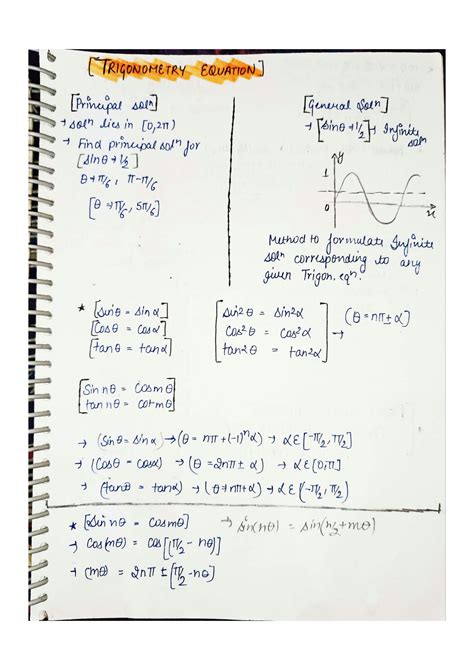 [TRIGONOMETRY EQUATION]
[Principal solⁿ]
→ solⁿ lies in [0,2π)
→ Find principal solⁿ for
[sinθ → 1/2]
θ → π/6 , π-π/6
[θ → π/6, 5π/6]
[General Solⁿ]
→ [sinθ → 1/2] → Infinite
solⁿ
y
1
0
x
Method to formulate Infinite
solⁿ corresponding to any
given Trigon. eqⁿ.
★ [sinθ = sinα]
[cosθ = cosα]
[tanθ = tanα]
[sin²θ = sin²α
cos²θ = cos²α → (θ = nπ ± α)
tan²θ = tan²α]
[Sin nθ = Cos mθ
tan nθ = cot mθ]
→ (Sinθ = Sinα) → (θ = nπ + (-1)ⁿα) → α ∈ [-π/2, π/2]
→ (Cosθ = cosα) → (θ = 2nπ ± α) → α ∈ [0,π]
→ (tanθ = tanα) → (θ → nπ+α) → α ∈ (-π/2, π/2)
★ [Sin nθ = Cos mθ] → sin(nθ) = sin(π/2 + mθ)
→ Cos(mθ) = cos[(π/2 - nθ)]
→ (mθ) = 2nπ ± [π/2 - nθ]